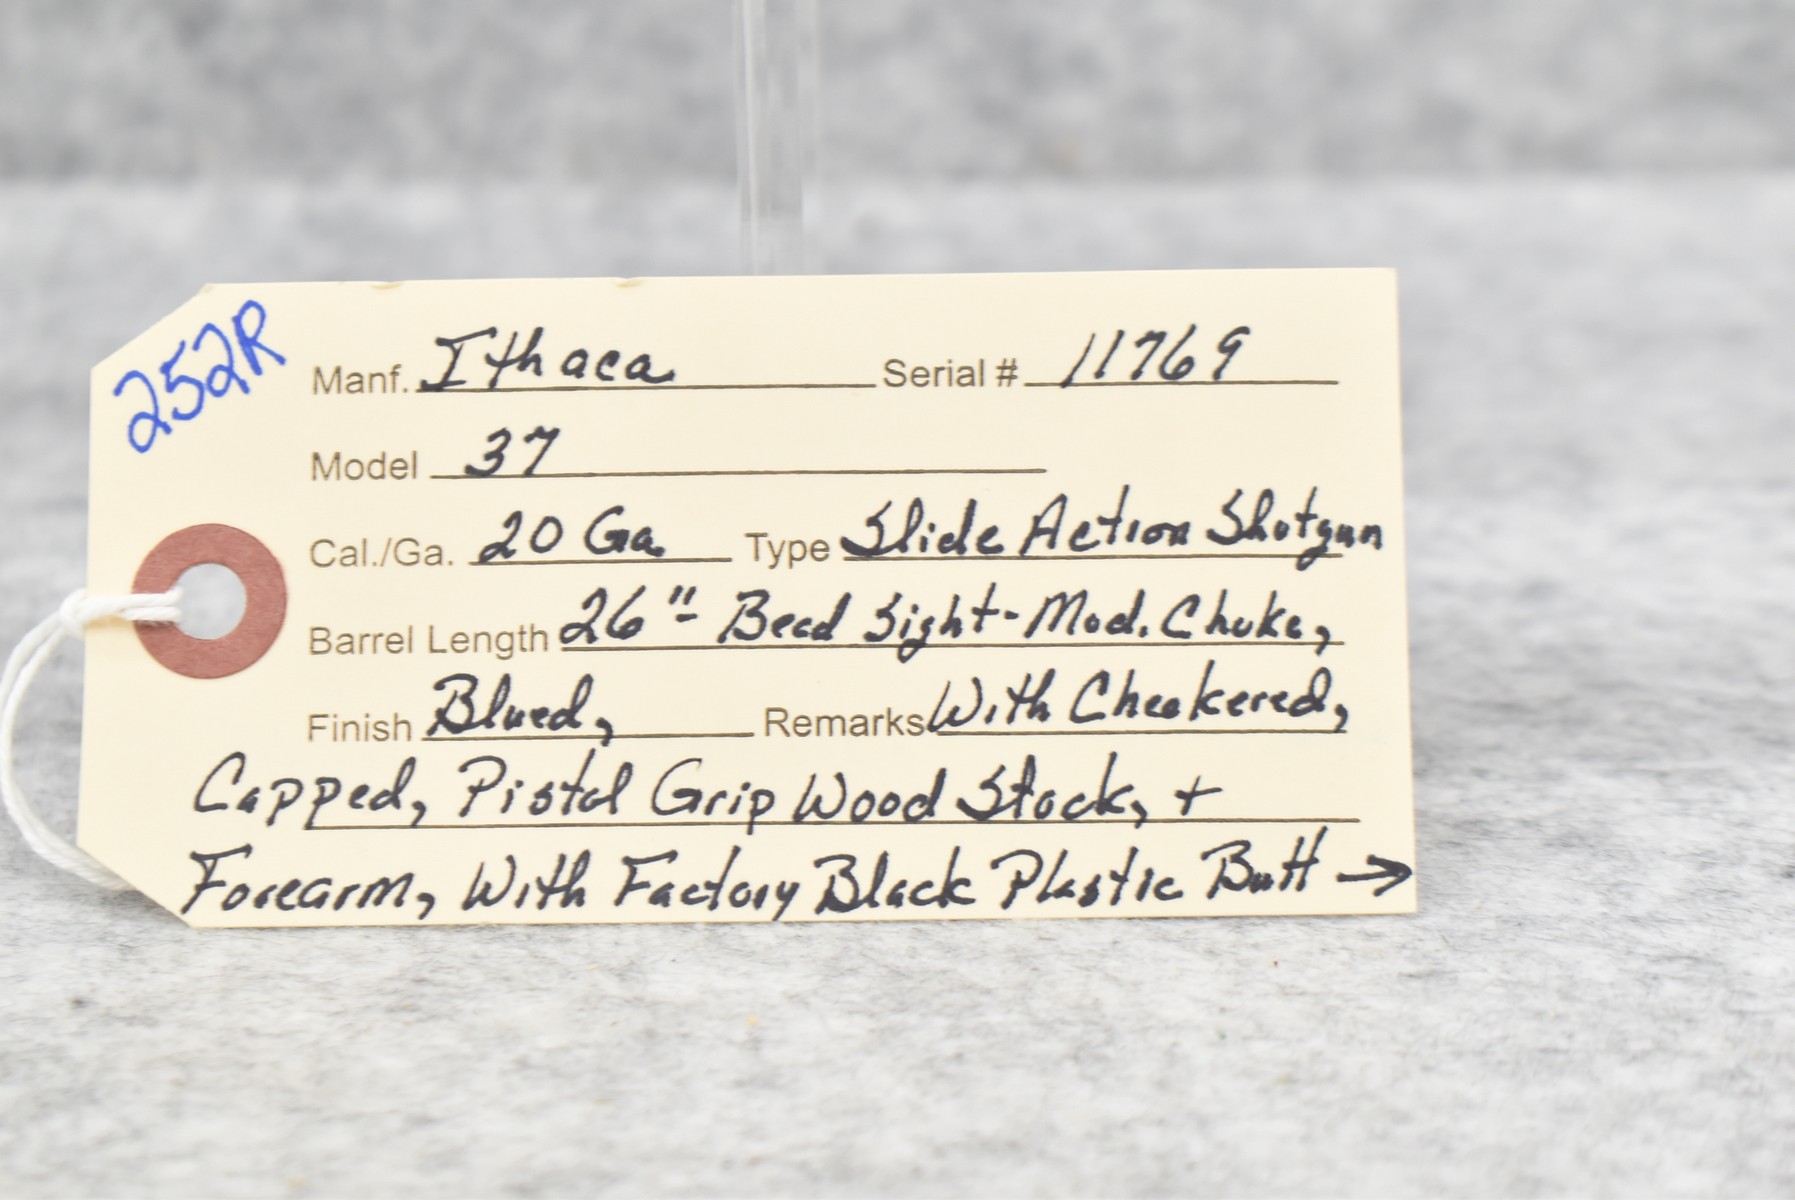 252R
Manf. Ithaca Serial # 11769
Model 37
Cal./Ga. 20 Ga. Type Slide Action Shotgun
Barrel Length 26"- Bead Sight-Mod. Choke,
Finish Blued, Remarks With Checkered,
Capped, Pistol Grip Wood Stock, +
Forearm, With Factory Black Plastic Butt →